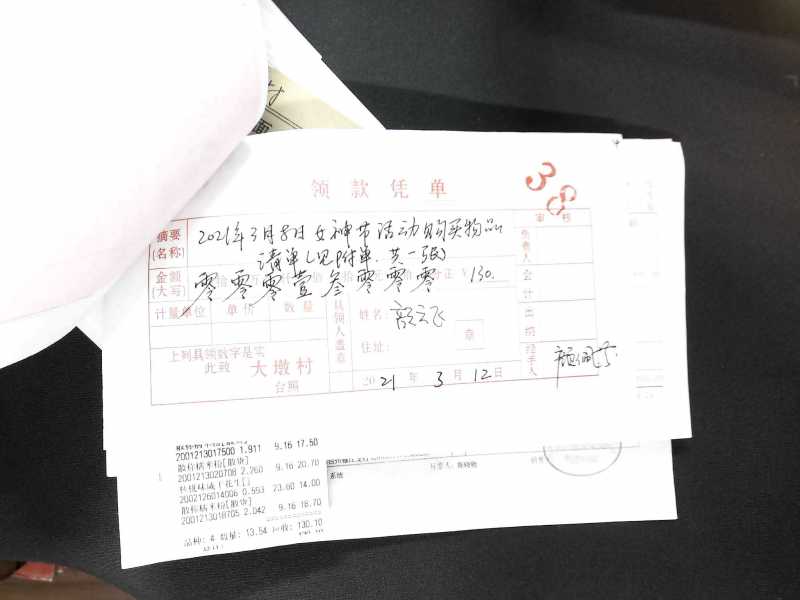 领款凭单
38
摘要(名称) 2021年3月8日女神节活动购买物品
清单(见附单.共一张)
审核
负责人
会计
出纳
经手人
金额(大写) 零零零壹叁零零零 130.
计量单位 单价 数量
具领人盖章
姓名:
住址: 章
上列具领数字是实
此致 大墩村
台照
2021年3月12日
2001213017500 1.911 9.16 17.50
散称糯米粉[散货]
2001213020708 2.260 9.16 20.70
2002126014006 0.593 23.60 14.00
散称糯米粉[散货]
2001213018705 2.042 9.16 18.70
品种: 4 数量: 13.54 应收: 130.10
系统